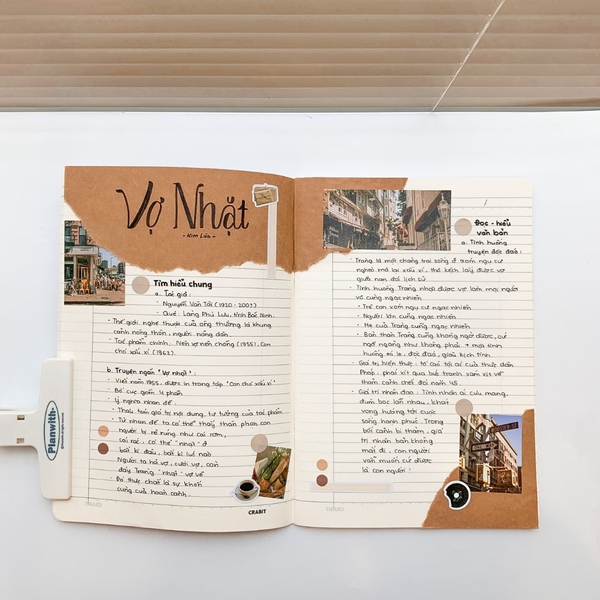 Vợ Nhặt
- Kim Lân -
Tìm hiểu chung
a. Tác giả :
- Nguyễn Văn Tài (1920 - 2007)
- Quê : Làng Phù Lưu, tỉnh Bắc Ninh.
- Thế giới nghệ thuật của ông thường là khung
cảnh nông thôn, người nông dân.
- Tác phẩm chính : Nên vợ nên chồng (1955), Con
chó xấu xí (1962).
b. Truyện ngắn "Vợ nhặt" :
- Viết năm 1955, được in trong tập "Con chó xấu xí"
- Bố cục gồm 4 phần
- Lý nghĩa nhan đề :
+ Thâu tóm giá trị nội dung, tư tưởng của tác phẩm
+ Từ nhan đề ta có thể thấy thân phận con
người bị rẻ rúng như cái rơm,
cái rác, có thể "nhặt" ở
bất kì đâu, bất kì lúc nào
Người ta hỏi vợ, cưới vợ, còn
đây Tràng "nhặt" vợ về
- Đó thực chất là sự khốn
cùng của hoàn cảnh.
CRABIT
Đọc - hiểu
văn bản
a. Tình huống
truyện độc đáo :
- Tràng là một chàng trai sống ở xóm ngụ cư
nghèo mà lại xấu xí, thô kệch lấy được vợ
giữa nạn đói lịch sử
- Tình huống Tràng nhặt được vợ làm mọi người
vô cùng ngạc nhiên
+ Xóm ngụ cư ngạc nhiên
+ Người lớn cũng ngạc nhiên
+ Mẹ của Tràng cũng ngạc nhiên
+ Bản thân Tràng cũng không ngờ được, cứ
ngỡ ngàng như không phải → một tình
huống éo le, độc đáo, giàu kịch tính
- Giá trị hiện thực : tố cáo tội ác của thực dân
Pháp, phát xít qua bức tranh xám xịt về
thảm cảnh chết đói năm 45.
- Giá trị nhân đạo : Tình nhân ái cưu mang,
đùm bọc lẫn nhau, khát
vọng hướng tới cuộc
sống hạnh phúc. Trong
bối cảnh bi thảm, giá
trị nhân bản không
mất đi, con người
vẫn muốn cứ được
là con người!
Planwith